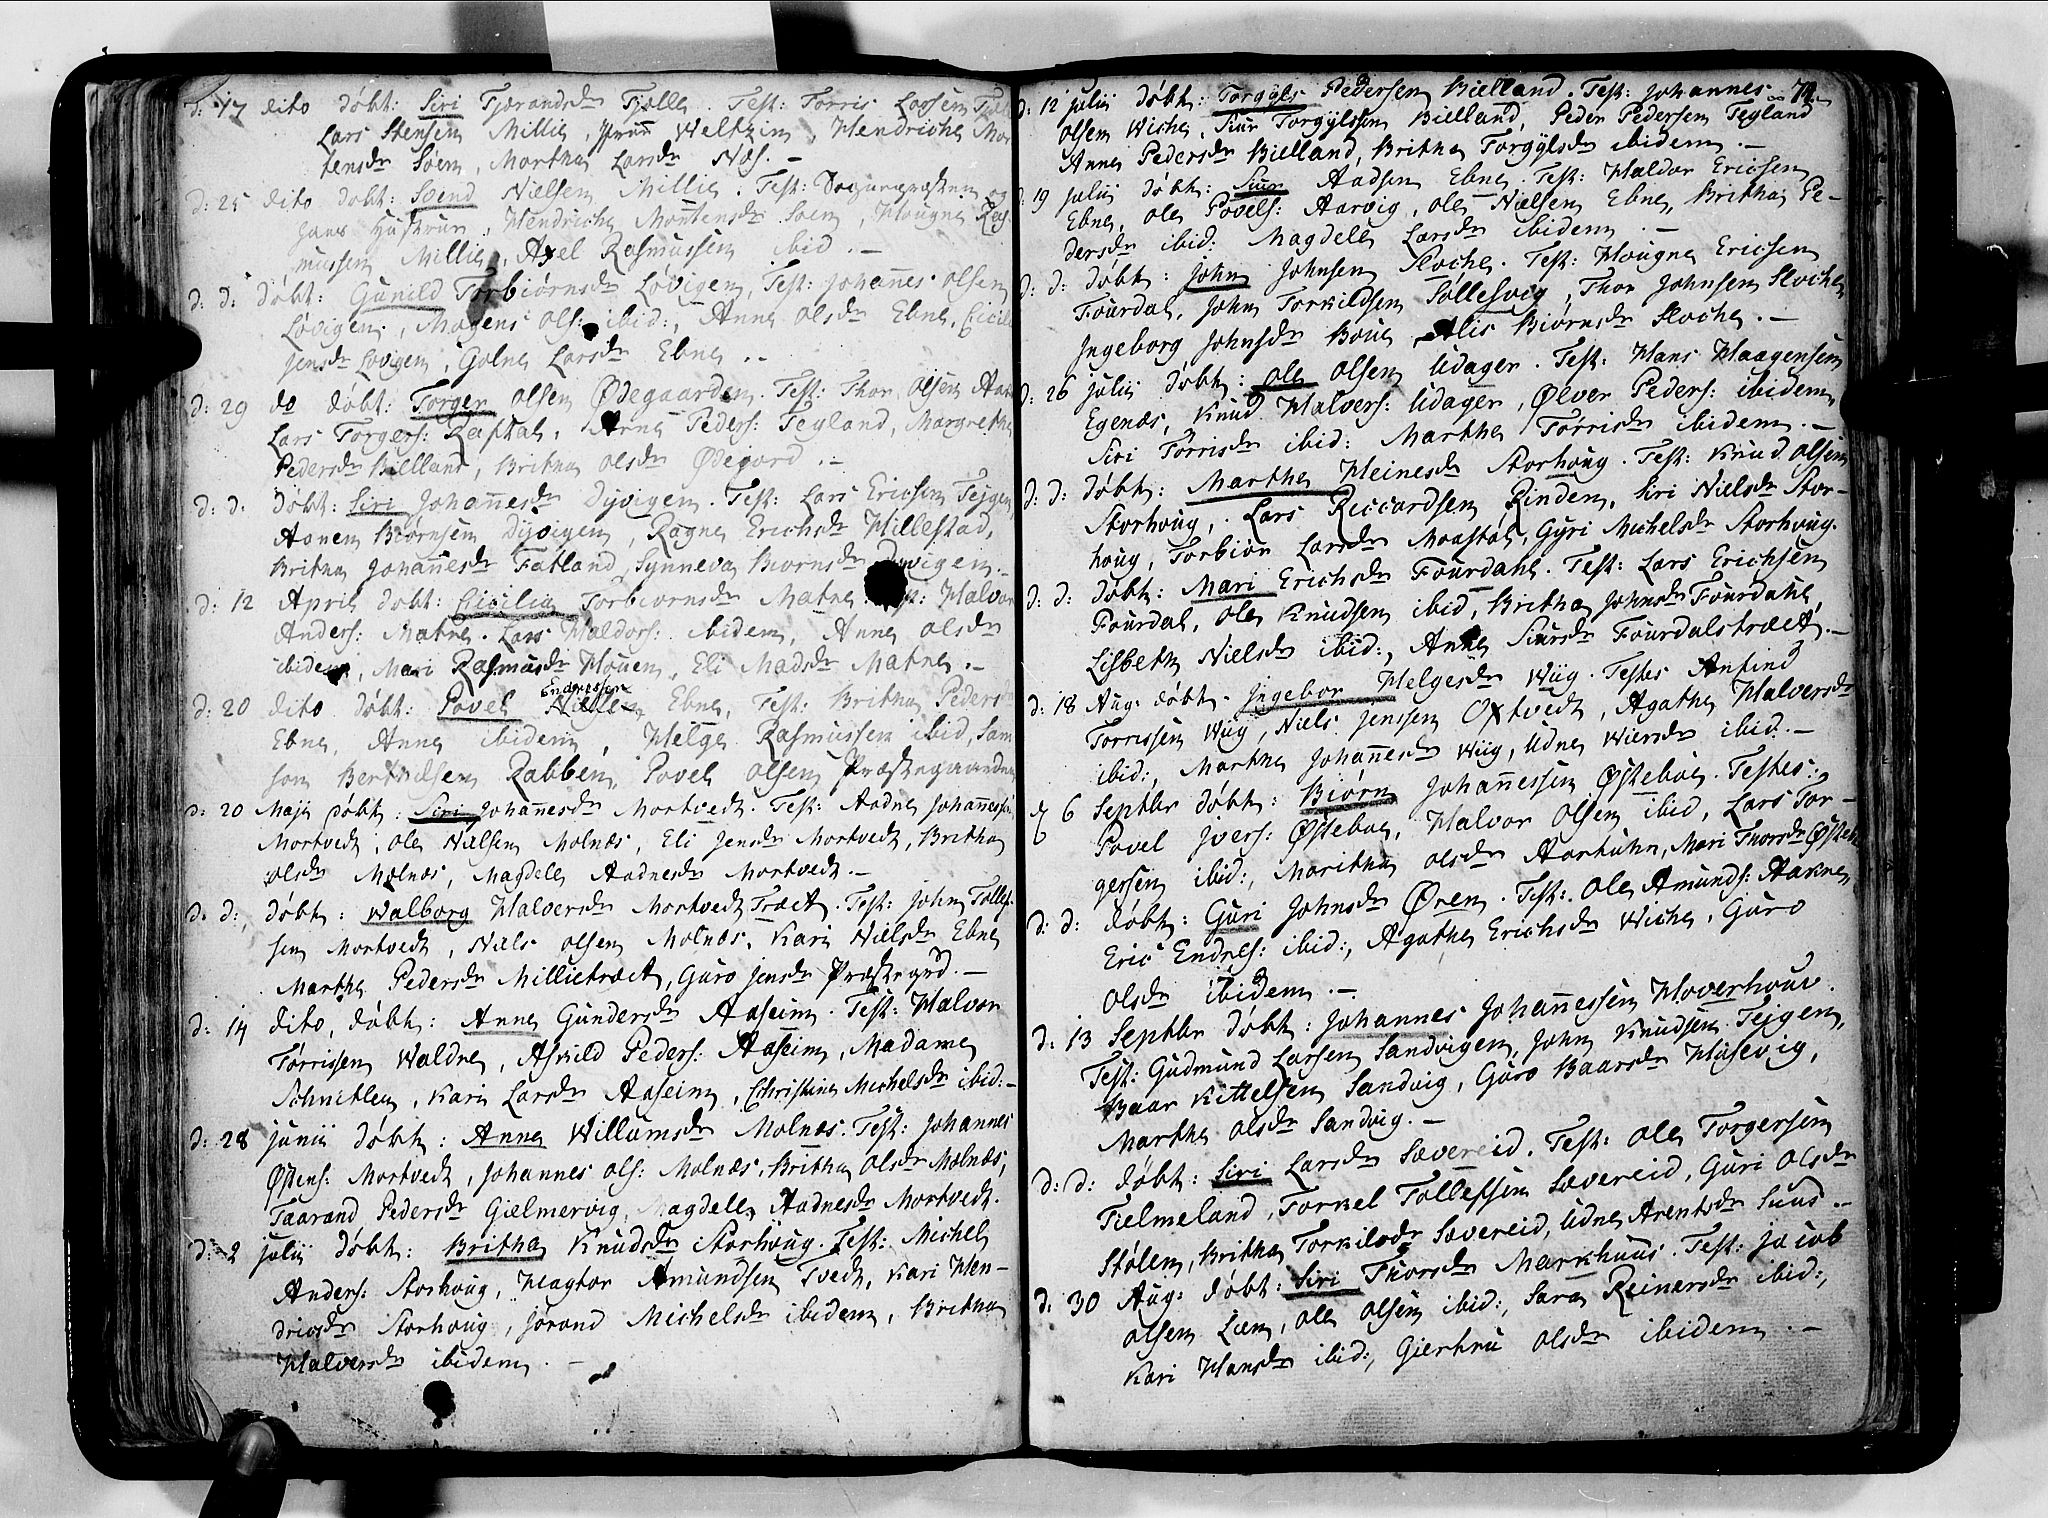 d: 17 dito døbt: Siri Tjerandsdr Tjelle. Test: Torris Larsen
Lars Stensen Millie, Weltzin, Hendriche Mor
tensdr Søem, Martha Larsdr Næs. –
d: 25 dito døbt: Soend Nielsen Millie. Test: og
hans Hustrue, Hendriche Mortensdr Soem, Hougne Ras
mussen Millie, Axel Rasmussen ibid. –
d: d: døbt: Gunild Torbiørnsdr Løvigen, Test: Johannes Olsen
Løvigen, Mogens Ols: ibid:, Anne Olsdr Ebne,
Jensdr Løvigen, Golne Larsdr Ebne. –
d: 29 do døbt: Torger Olsen Ødegaarden. Test: Thor Olsen
Lars Torgers: Arne Peders: Tegland, Margrethe
Pedersdr Bielland, Britha Olsdr Ødegord. –
d: d. døbt: Siri Johannesdr Dyvigen. Test: Lars Ericsen Tejgen
Aanen Biørnsen Dyvigen, Ragne Erichsdr Hillestad,
Britha Johannesdr Fatland, Synneva Biornsdr Dyvigen. –
d: 12 April døbt: Cicilia Torbiornsdr Matre. Test: Halvor
Anders: Matre. Lars Haldors: ibidem, Anne Olsdr
ibidem, Mari Rasmusdr Houen, Eli Madsdr Matre. –
Endressen
d: 20 dito døbt: Povel Nielsen Ebne, Test: Britha Peders
Ebne, Anne ibidem, Helge Rasmussen ibid, Sam
son Berthelsen Rabben, Povel Olsen Præstegaarden
d: 20 Maji døbt: Siri Johannesdr Mortvedt. Test: Aadne Johannessen
Mortvedt, Ole Nielsen Molnæs, Eli Jensdr Mortvedt, Britha
Olsdr Molnæs, Magdele Aadnesdr Mortvedt. –
d: d: døbt: Walborg Halversdr Mortvedt Træet. Test: John Tollef
sen Mortvedt, Niels Olsen Molnæs, Kari Nielsdr Ebne
Martha Pedersdr Millietræet, Guro Jensdr Præstegrd. –
d: 14 dito, døbt: Anne Gundersdr Aaseim. Test: Halvor
Torrissen Waldre, Askild Peders: Aaseim, Madame
Schnitler, Kari Larsdr Aaseim, Christine Michelsdr ibid: –
d: 28 junii døbt: Anne Willumsdr Molnæs. Test: Johannes
Østens: Mortvedt, Johannes Ols: Molnæs, Britha Olsdr Molnæs,
Taarand Pedersdr Gielmervig, Magdele Aadnesdr Mortvedt.
d: 2 julii døbt: Britha Knudsdr Storhoug. Test: Michel
Anders: Storhoug, Hagtor Amundsen Tvedt, Kari Hen-
dricsdr Storhoug, Jorand Michelsdr ibidem, Britha
Halversdr ibidem. –
d: 12 julii døbt: Torgyls Pedersen Bielland. Test: Johannes
Olsen Wiche, Siur Torgylssen Bielland, Peder Pedersen Tegland
Anne Pedersdr Bielland, Britha Torgylsdr ibidem. –
d: 19 julii døbt: Siur Aadsen Ebne. Test: Haldor Ericsen
Ebne, Ole Povels: Aarvig, Ole Nielsen Ebne, Britha Pe-
dersdr ibid: Magdele Larsdr ibidem. –
d: d: døbt: John Johnsen Stoche. Test: Hougne Ericsen
Fourdal, John Torkildsen Tollesvig, Thor Johnsen Stoche
Ingeborg Johnsdr Boue, Alis Biørnsdr Stoche. –
d: 26 julii døbt: Ole Olsen Udager. Test: Hans Haagensen
Egenæs, Knud Halvers: Udager, Ølver Peders: ibidem,
Siri Torrisdr ibid: Martha Torrisdr ibidem. –
d: d: døbt: Martha Heinesdr Storhoug. Test: Knud Olsen
Storhoug, Lars Riccardsen Rinden, Siri Nielsdr Stor-
houg, Torbior Larsdr Maastøl, Gyri Michelsdr Storhoug.
d: d: døbt: Mari Erichsdr Fourdahl. Test: Lars Erichsen
Fourdal, Ole Knudsen ibid, Britha Johnsdr Fourdahl,
Lisbeth Nielsdr ibid:, Anne Siursdr Fourdalstræet. –
d: 18 Aug: døbt. Ingebor Helgesdr Wiig. Testes Anfind
Torrissen Wiig, Niels Jenssen Oxtvedt, Agatha Halversdr
ibid:, Martha Johannesdr Wiig, Udne Wiersdr ibid. –
d 6 Septbr døbt: Biørn Johannessen Østeboe. Testes:
Povel Jvers: Østeboe, Halvor Olsen ibid, Lars Tor-
gersen ibid:, Maritha Olsdr Aarhuhs, Mari Thorsdr Østeboe
d: d: døbt: Guri Johnsdr Øren. Test: Ole Amunds: Aakre,
Eric Endres: ibid:, Agatha Erichsdr Wiche, Guro
Olsdr ibidem. –
d: 13 Septbr døbt: Johannes Johannessen Hoverhour.
Test: Gudmund Larsen Sandvigen, John Knudsen Tejgen,
Baar Kittelsen Sandvig, Guro Baarsdr Husevig,
Martha Olsdr Sandvig. –
d: d: døbt: Siri Larsdr Sævereid. Test: Ole Torgersen
Fielmeland, Torkel Tollefsen Sævereid, Guri Olsdr
Stølen, Britha Torkilsdr Sævereid, Udne Arentsdr Suus. –
d: 30 Aug: døbt: Siri Thorsdr Markhuus. Test: Jacob
Olsen Lien, Ole Olsen ibid:, Sara Reinersdr ibid:,
Kari Hansdr ibid:, Giertrü Olsdr ibidem. –